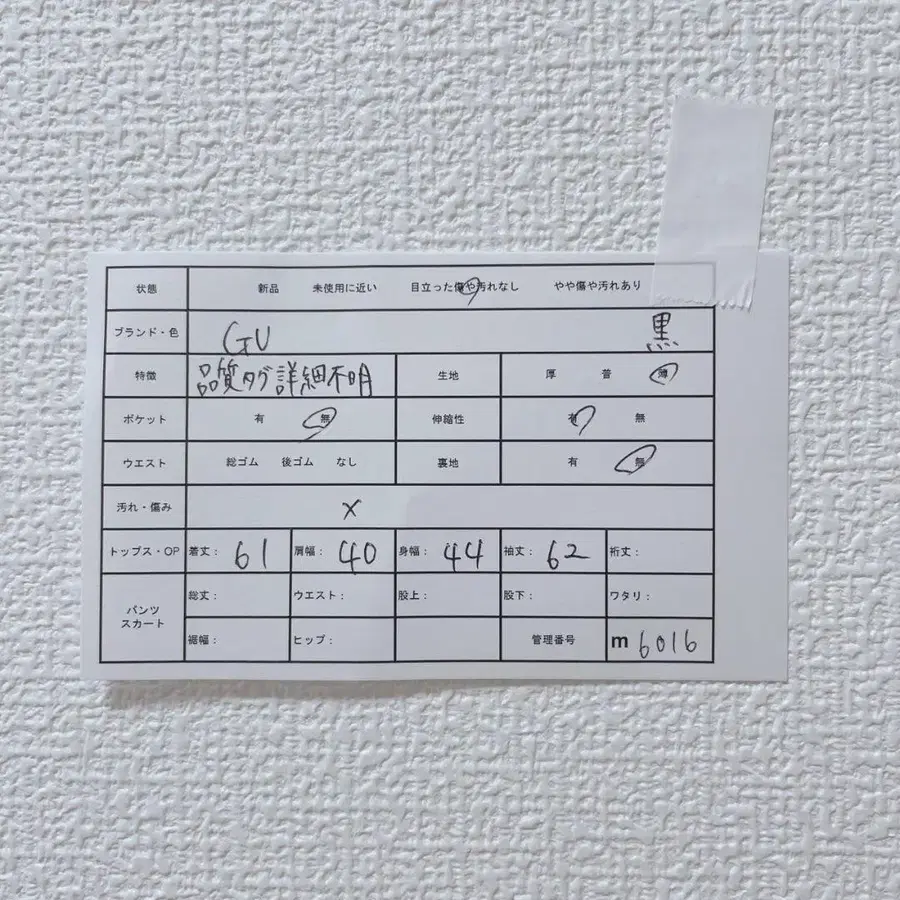 状態 新品 未使用に近い 目立った傷や汚れなし やや傷や汚れあり
ブランド・色 GU 黒
特徴 品質タグ詳細不明 生地 厚 普 薄
ポケット 有 無 伸縮性 有 無
ウエスト 総ゴム 後ゴム なし 裏地 有 無
汚れ・傷み x
トップス・OP 着丈: 61 肩幅: 40 身幅: 44 袖丈: 62 裄丈:
パンツ スカート 総丈: ウエスト: 股上: 股下: ワタリ:
裾幅: ヒップ: 管理番号 m 6016